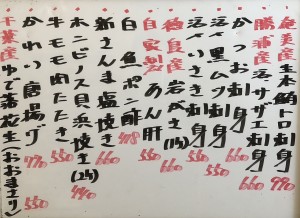 奄美産生本鮪トロ刺身 990
勝浦産活〆サザエ刺身 660
かつお刺身 660
活〆黒ムツ刺身 660
活〆いさき刺身 550
徳島産岩がき(1ケ) 660
自家製あん肝 550
白魚ポン酢 418
新さんま塩焼き 660
ホンビノス貝浜焼き(2ケ) 440
牛モモ肉たたき 550
かわり唐揚げ 770
千葉産ゆで落花生(おおまさり) 550